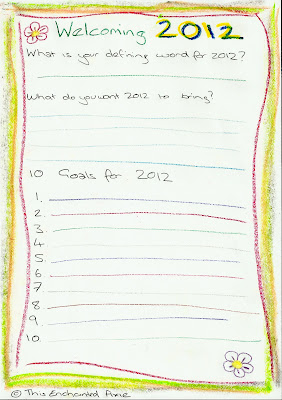 Welcoming 2012
What is your defining word for 2012?
What do you want 2012 to bring?
10 Goals for 2012
1.
2.
3
4
5.
6.
7.
8
9.
10.
© This Enchanted Pixie